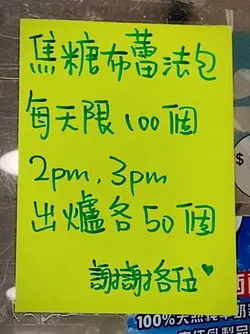 焦糖布蕾法包
每天限100個
2pm、3pm
出爐各50個
謝謝各位♥
$
100%天然純牛奶